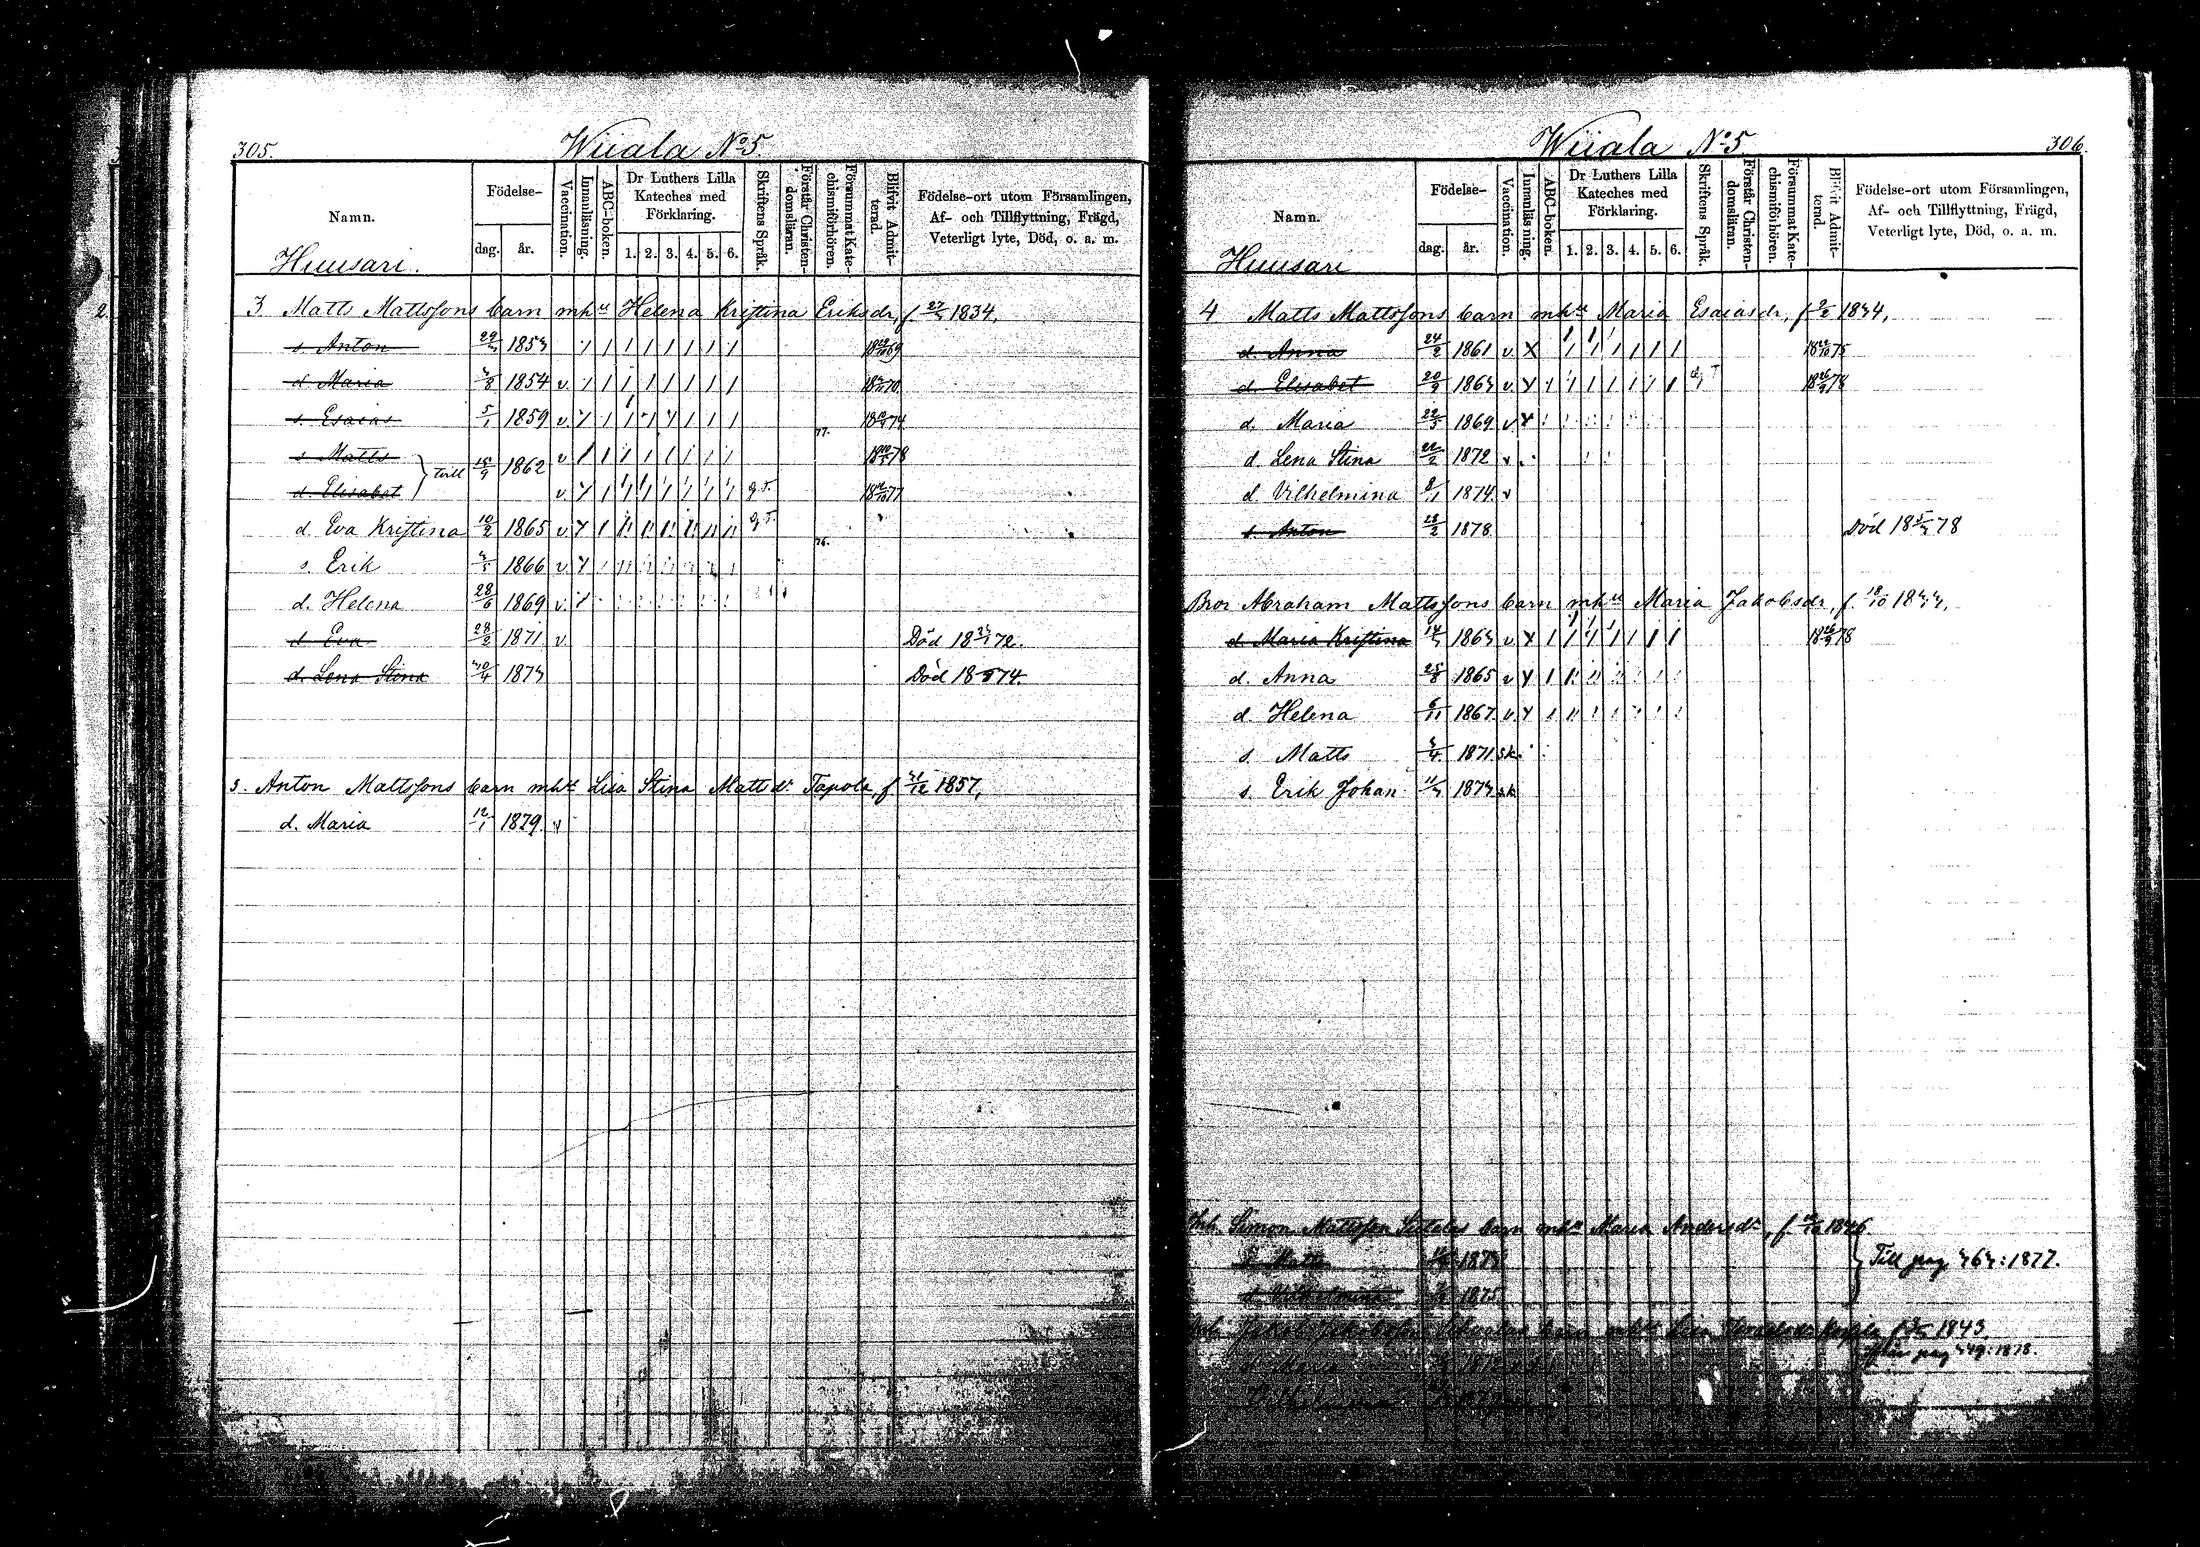 305.
Wiiala No 5.
Namn.
Födelse-
dag.
år.
Vaccination.
Innanläsning.
ABC-boken.
Dr Luthers Lilla
Kateches med
Förklaring.
1. 2. 3. 4. 5. 6.
Skriftens Språk.
Förstår Christen-
domsläran.
Försummat Kate-
chismiförhören.
Blifvit Admit-
terad.
Födelse-ort utom Församlingen,
Af- och Tillflyttning, Frägd,
Veterligt lyte, Död, o. a. m.
Huusari.
3 Matts Mattssons barn mhu Helena Kristina Eriksdr, f. 1834,
s Anton 1853
d Maria 1854 v
s. Esaias 5/1 1859 v
77.
s Matts tvill 1862 v
d. Elisabet v
d. Eva Kristina 10/2 1865 v
76.
s. Erik 1866 v
d. Helena 28/6 1869 v.
d Eva 28/2 1871 v. Död 72.
d. Lena Stina 30/4 1873 Död 74.
s. Anton Mattssons barn mhu Lisa Stina Mattsdr Tapola, f 31/12 1857,
d. Maria 12/1 1879. v
306.
Wiiala No 5.
Namn.
Födelse-
dag.
år.
Vaccination.
Innanläsning.
ABC-boken.
Dr Luthers Lilla
Kateches med
Förklaring.
1. 2. 3. 4. 5. 6.
Skriftens Språk.
Förstår Christen-
domsläran.
Försummat Kate-
chismiförhören.
Blifvit Admit-
terad.
Födelse-ort utom Församlingen,
Af- och Tillflyttning, Frägd,
Veterligt lyte, Död, o. a. m.
Huusari
4 Matts Mattssons barn mhu Maria Esaiasdr, f 1834,
d. Anna 24/2 1861 v. X
d. Elisabet 20/9 1863 v.
d. Maria 1869 v
d. Lena Stina 1872 v
d. Vilhelmina 8/11 1874. v
s. Anton 28/2 1878. Död 18 5/3 78
Bror Abraham Mattssons barn mhu Maria Jakobsdr, f. 18/10 1833,
d. Maria Kristina 14/3 1863 v
d. Anna 25/8 1865 v
d. Helena 6/11 1867 v.
s. Matts 3/4 1871 sk.
s. Erik Johan 11/3 1873 sk
Inh. Simon Mattsson barn mhu Maria Andersdr, f 1846.
s. Matts 1873
d. Vilhelmina 1875
Till pag 363: 1877.
Inh. Jakob Jakobsson barn mhu Lisa f 1843.
d. Maria 1872
pag 349: 1878.
Vilhelmina